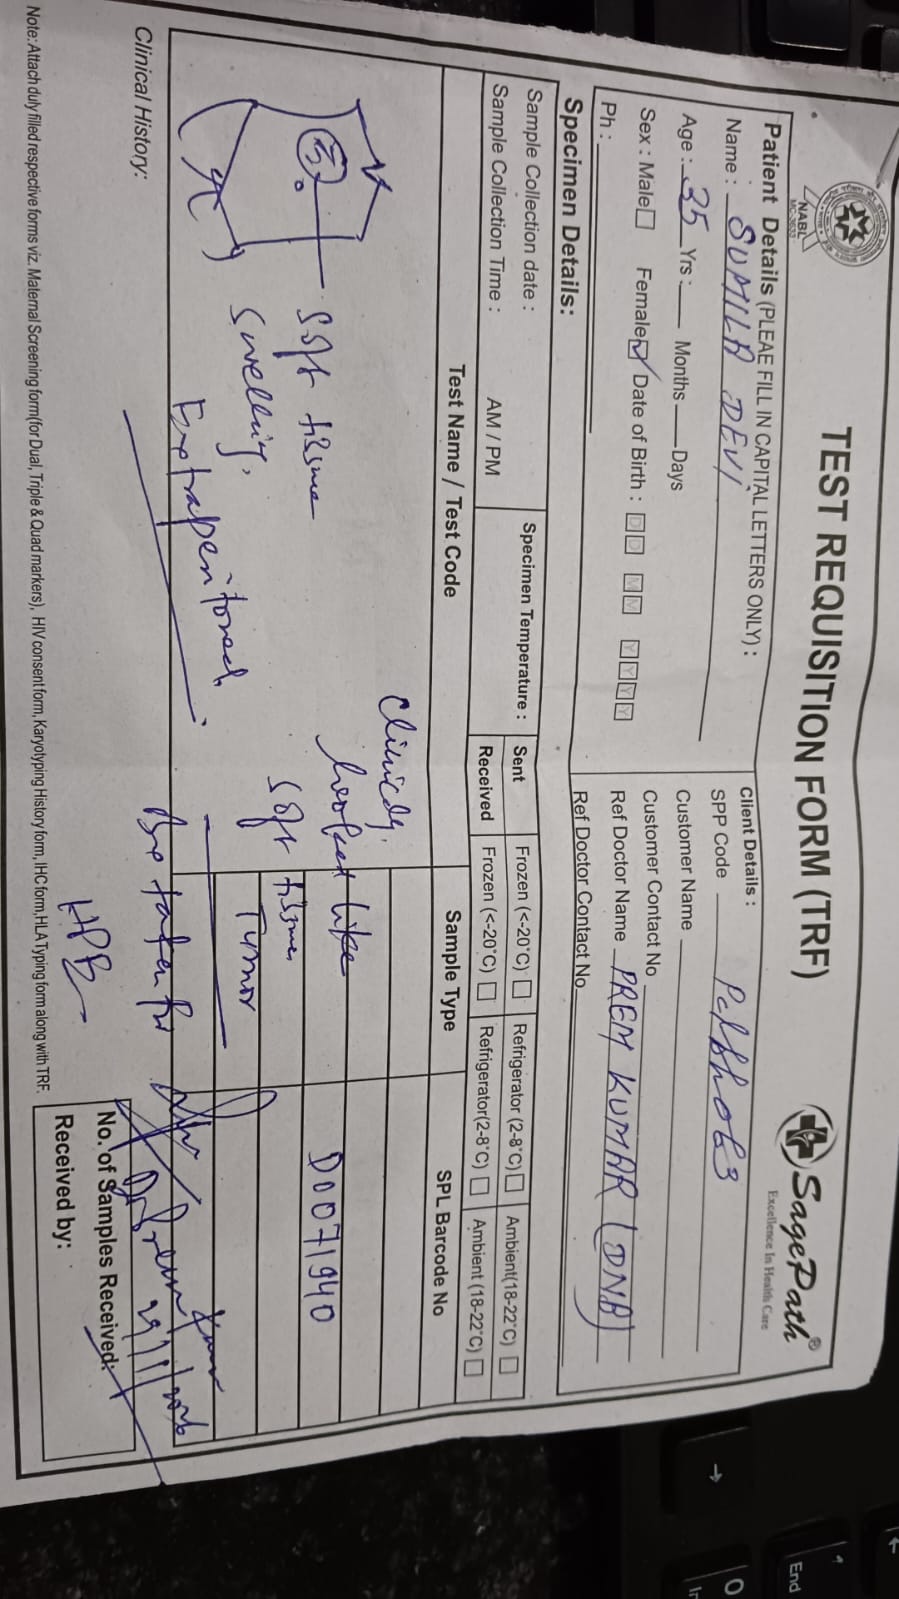 NABL
TEST REQUISITION FORM (TRF)
SagePath®
Excellence In Health Care
Patient Details (PLEAE FILL IN CAPITAL LETTERS ONLY) :
Name : SUMILA DEVI
Age : 35 Yrs : Months Days
Sex : Male Female Date of Birth : D D M M Y Y Y Y
Ph :
Client Details :
SPP Code
Customer Name
Customer Contact No
Ref Doctor Name PREM KUMAR (DNB)
Ref Doctor Contact No
Specimen Details:
Sample Collection date :
Sample Collection Time : AM / PM
Specimen Temperature :
Sent Frozen (<-20°C) Refrigerator (2-8°C) Ambient(18-22°C)
Received Frozen (<-20°C) Refrigerator(2-8°C) Ambient (18-22°C)
Test Name / Test Code Sample Type SPL Barcode No
Clinically
looked like
soft tissue
Tumor
D0071940
Soft tissue
swelling,
Extraperitoneal
taken for
HPE
Clinical History:
No. of Samples Received:
Received by:
Note: Attach duly filled respective forms viz. Maternal Screening form(for Dual, Triple & Quad markers), HIV consent form, Karyotyping History form, IHC form, HLA Typing form along with TRF.
End